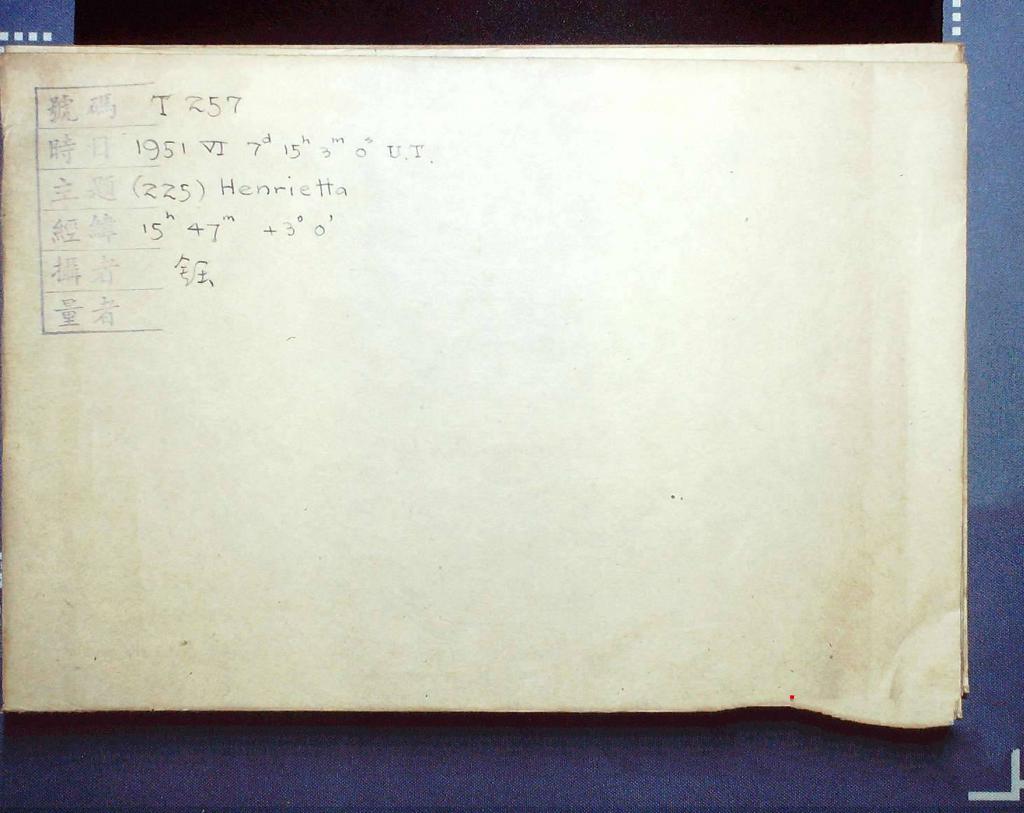 號碼 T 257
時日 1951 VI 7ᵈ 15ʰ 3ᵐ 0ˢ U.T.
主題 (225) Henrietta
經緯 15ʰ 47ᵐ +3° 0'
攝者 鈺
量者